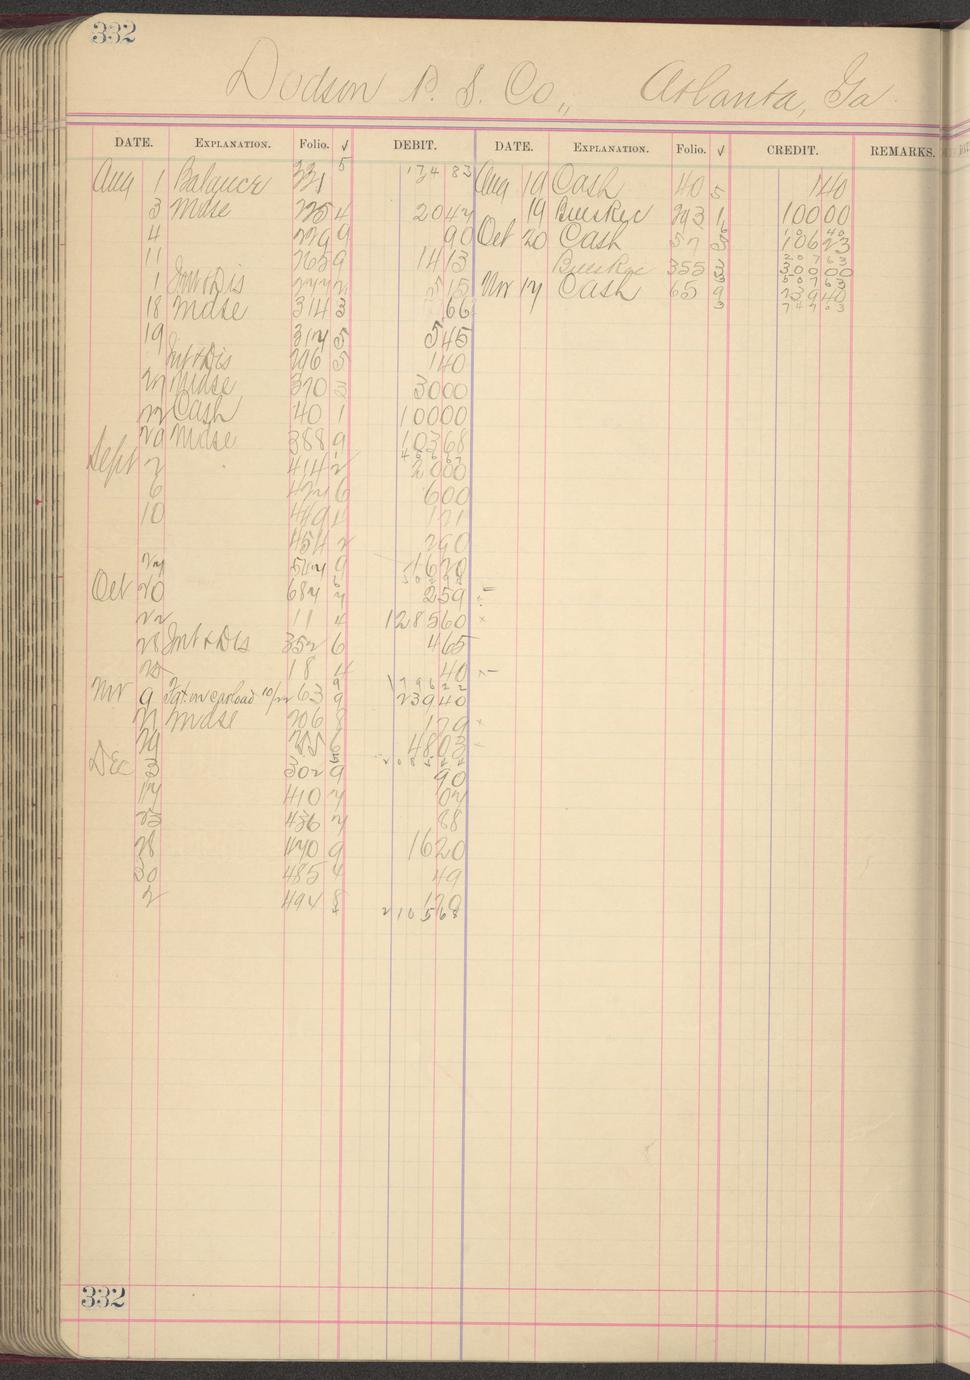 332
Dodson P. S. Co., Atlanta, Ga
DATE. EXPLANATION. Folio. √ DEBIT. DATE. EXPLANATION. Folio. √ CREDIT. REMARKS.
Aug 1 Balance 331 5 134 83 Aug 19 Cash 40 5 1 40
3 Mdse 225 4 20 42 19 293 1 100 00
4 229 9 90 Oct 20 Cash 57 106 23
11 265 9 14 13 355 300 00
1 Int & Dis 15 Nov 17 Cash 65 9 239 40
18 Mdse 314 3 66
19 317 5 5 45
Int & Dis 296 5 1 40
Mdse 370 3 30 00
22 Cash 40 1 100 00
29 Mdse 388 9 103 68
Sept 2 414 2 20 00
6 6 6 00
10 449 1 1 21
454 2 2 90
27 9 16 20
Oct 20 687 7 2 59
22 11 4 1285 60
28 Int & Dis 352 6 4 65
25 18 4 40
Nov 9 Fgt. on carload 10/22 63 9 239 40
21 Mdse 206 8 1 29
29 6 48 03
Dec 3 302 9 90
17 410 7 07
23 436 7 88
28 470 9 16 20
30 485 4 49
2 494 8 1 29
2105 68
332